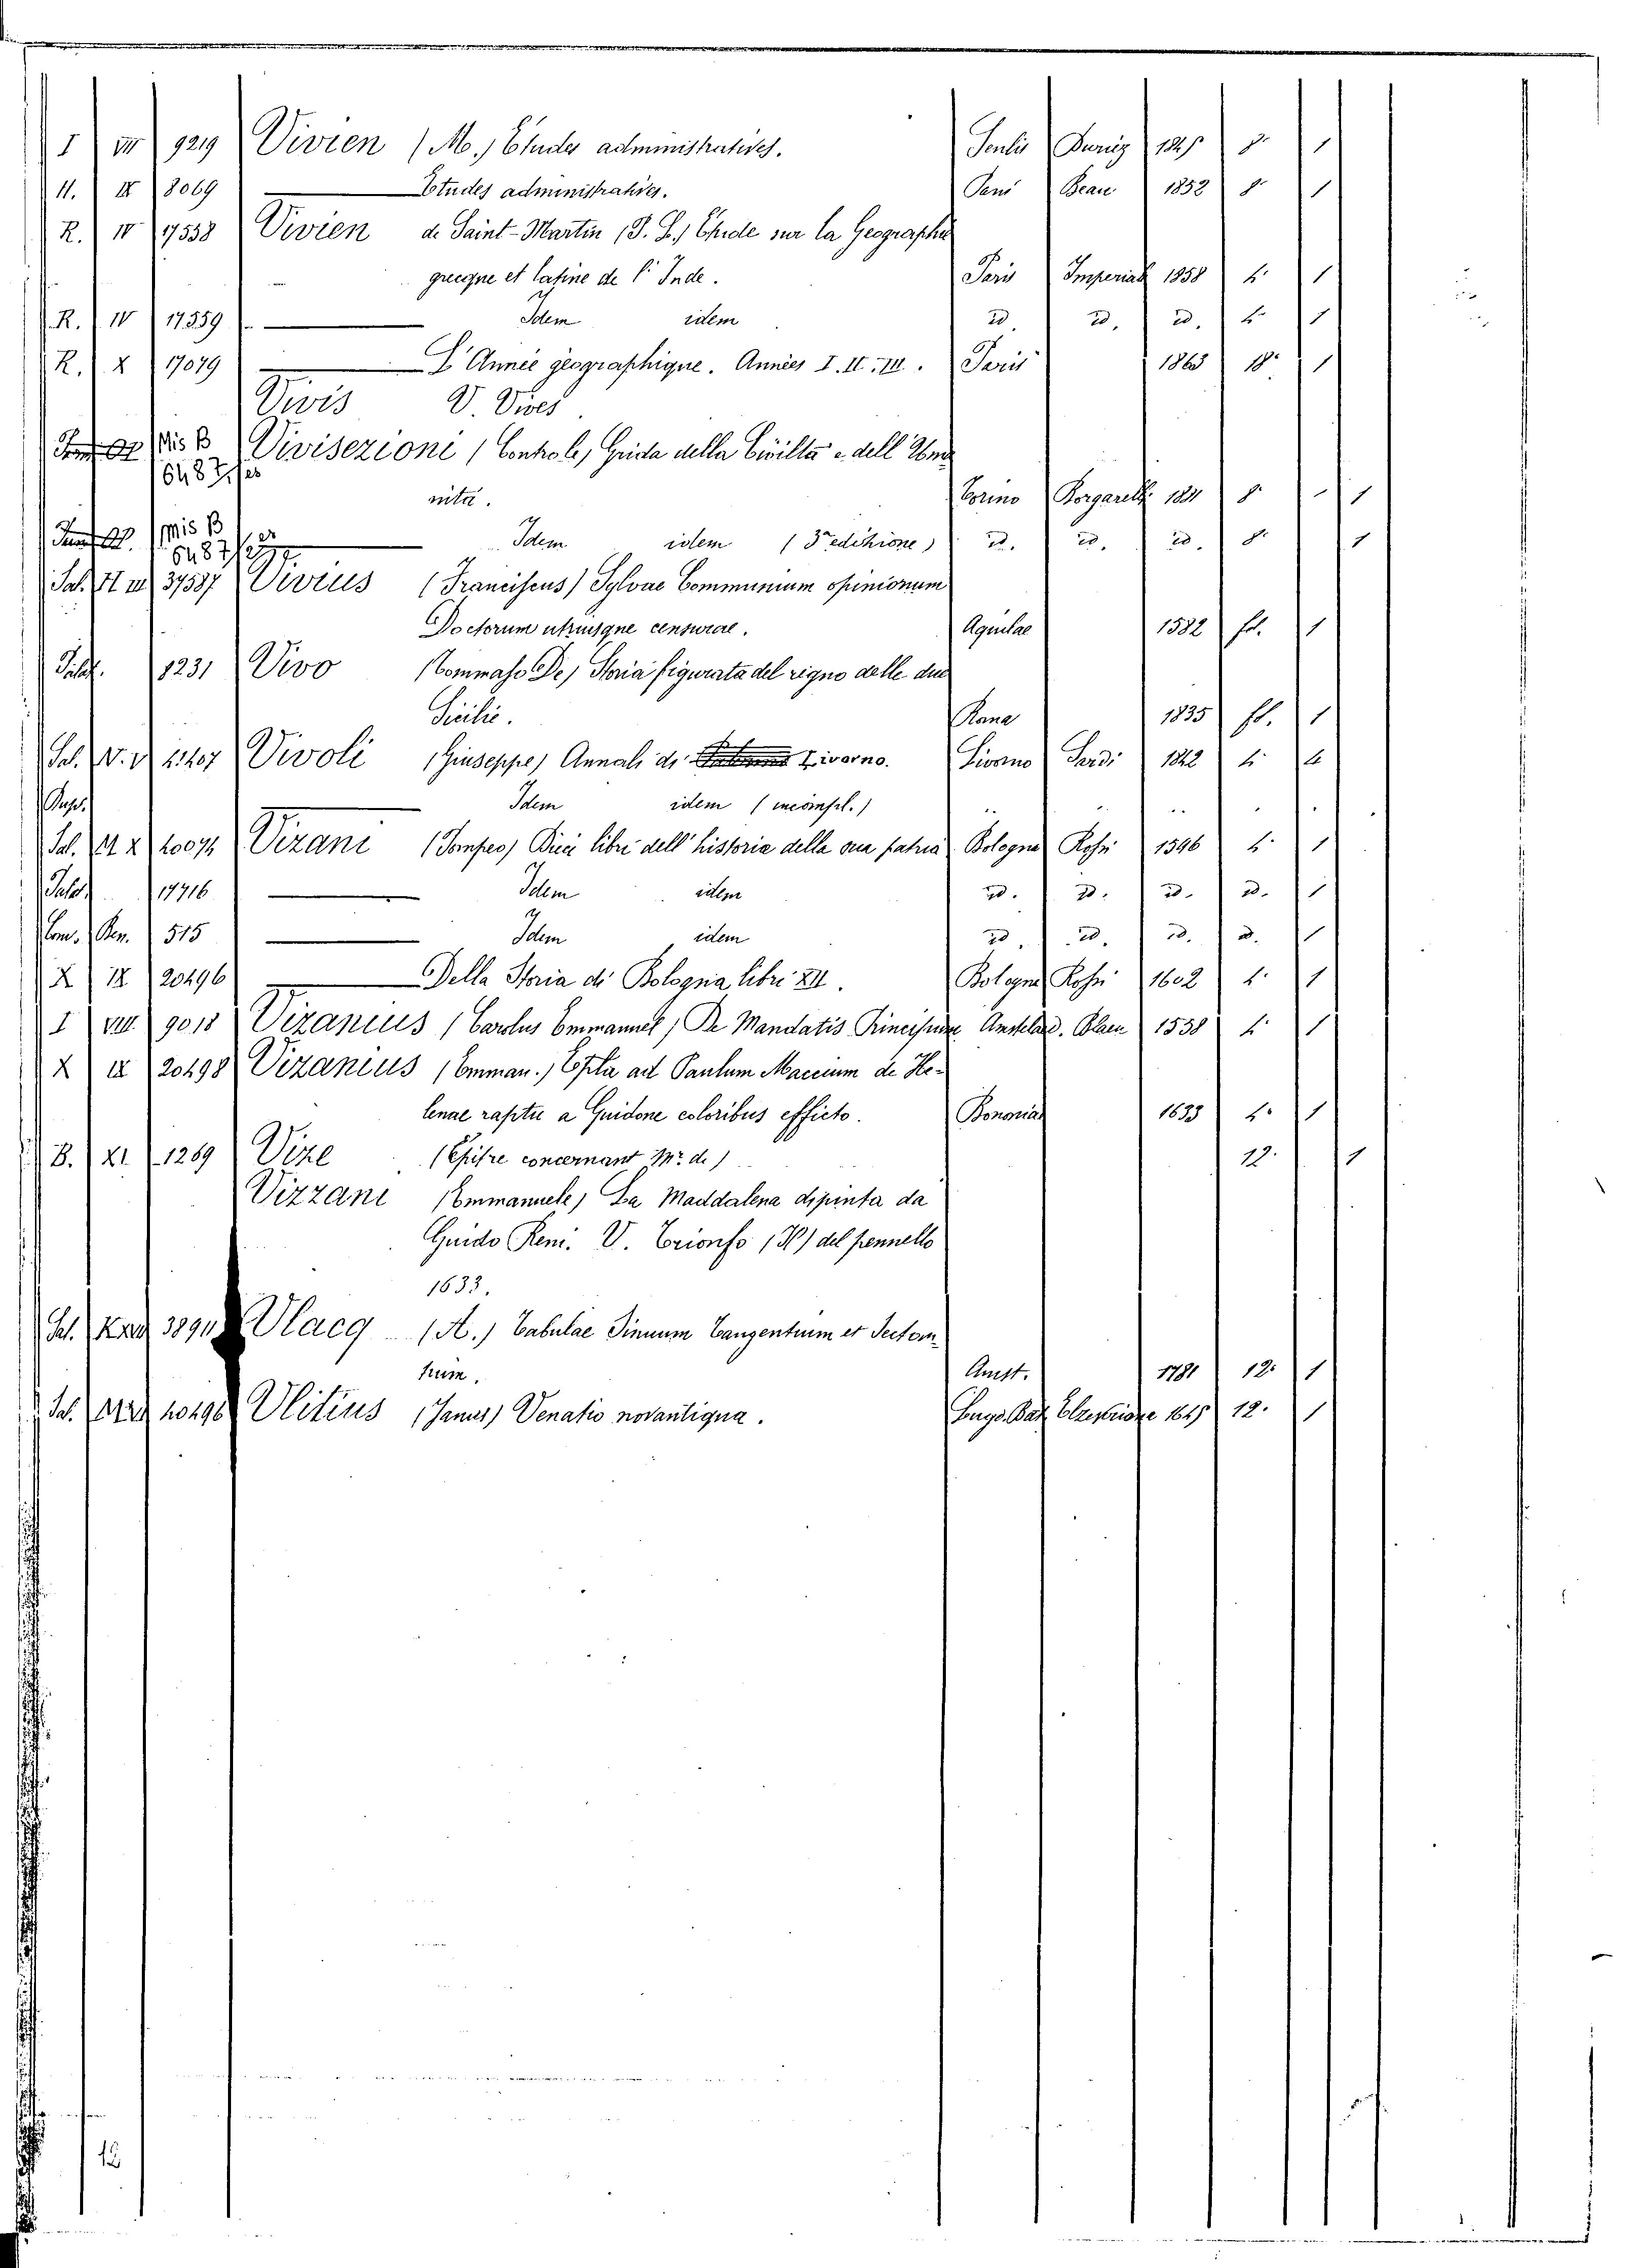 I VIII 9219 Vivien (M.) Etudes administratives. Senlis Duriez 1845 8° 1
H. IX 8069 Etudes administratives. Paris Beau 1852 8° 1
R. IV 17558 Vivien de Saint-Martin (J. L.) Etude sur la Geographie
grecque et latine de l'Inde. Paris Imperiale 1858 4° 1
R. IV 17559 Idem idem id. id. id. 4° 1
R. X 17079 L'Année géographique. Années I. II. III. Paris 1863 18° 1
Vivis V. Vives
Mis B Vivisezioni (Contro le) Grida della Civiltà e dell'Uma
6487
nità. Torino Borgarelli 8° 1
Mis B Idem idem (3a edizione) id. id. id. 8° 1
6487
Sal. 37587 Vivius (Franciscus) Sylvae Communium opinionum
Doctorum utriusque censurae. Aquilae 1582 fol. 1
1231 Vivo (Tommaso De) Storia figurata del regno delle due
Sicilie. 1835 fol. 1
Sal. Vivoli (Giuseppe) Annali di Livorno. Livorno Sardi 1842 4° 4
Idem idem (incompl.)
Sal. 40074 Vizani (Pompeo) Dieci libri dell'historia della sua patria Bologna Rossi 1596 4° 1
17716 Idem idem id. id. id. id. 1
Com. Ren. 515 Idem idem id. id. id. id. 1
X IX 20496 Della Storia di Bologna libri XII. Bologna Rossi 1602 4° 1
I VIII 9018 Vizanius (Carolus Emmanuel) De Mandatis Principum Amstelod. Blaeu 4° 1
X IX 20498 Vizanius (Emman.) Epla ad Paulum Maccium de He-
lenae raptu a Guidone coloribus efficto. Bononiae 1633 4° 1
B. XI 1269 Vize (Epitre concernant Mr. de) 12° 1
Vizzani (Emmanuele) La Maddalena dipinta da
Guido Reni. V. Trionfo (Il) del pennello
1633.
Sal. Vlacq (A.) Tabulae Sinuum Tangentium et Secton
tium. Amst. 12° 1
Sal. 40496 Vlitius (Janus) Venatio novantiqua. Lugd. Bat. Elzeviriana 1645 12° 1